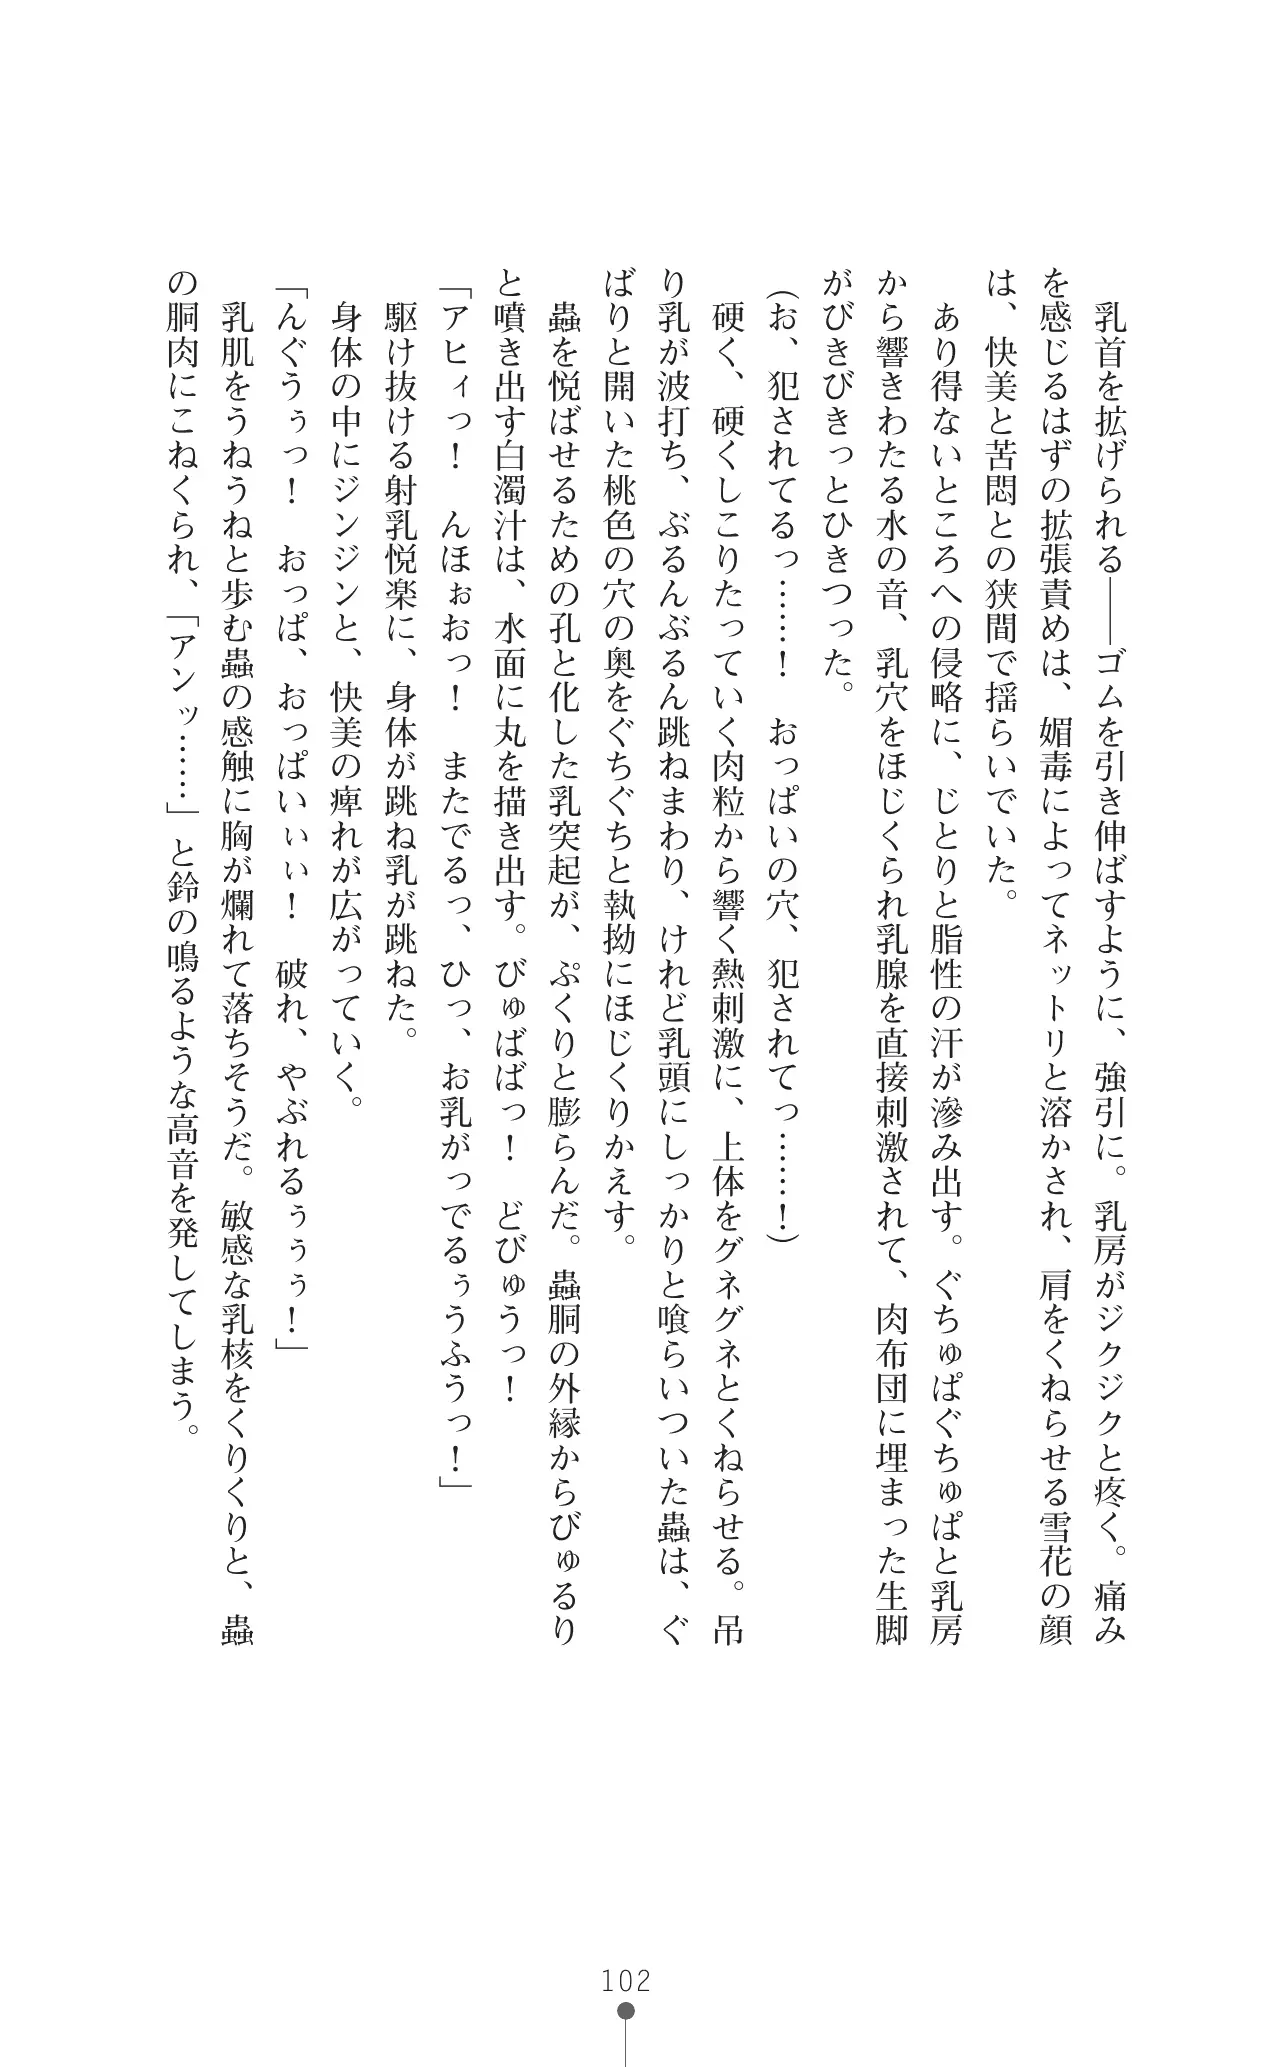 乳首を拡げられる――ゴムを引き伸ばすように、強引に。乳房がジクジクと疼く。痛み
を感じるはずの拡張責めは、媚毒によってネットリと溶かされ、肩をくねらせる雪花の顔
は、快美と苦悶との狭間で揺らいでいた。
　あり得ないところへの侵略に、じとりと脂性の汗が滲み出す。ぐちゅぱぐちゅぱと乳房
から響きわたる水の音、乳穴をほじくられ乳腺を直接刺激されて、肉布団に埋まった生脚
がびきびきっとひきつった。
（お、犯されてるっ……！　おっぱいの穴、犯されてっ……！）
　硬く、硬くしこりたっていく肉粒から響く熱刺激に、上体をグネグネとくねらせる。吊
り乳が波打ち、ぶるんぶるん跳ねまわり、けれど乳頭にしっかりと喰らいついた蟲は、ぐ
ばりと開いた桃色の穴の奥をぐちぐちと執拗にほじくりかえす。
　蟲を悦ばせるための孔と化した乳突起が、ぷくりと膨らんだ。蟲胴の外縁からびゅるり
と噴き出す白濁汁は、水面に丸を描き出す。びゅばばっ！　どびゅうっ！
「アヒィっ！　んほぉおっ！　またでるっ、ひっ、お乳がっでるぅうふうっ！」
　駆け抜ける射乳悦楽に、身体が跳ね乳が跳ねた。
　身体の中にジンジンと、快美の痺れが広がっていく。
「んぐうぅっ！　おっぱ、おっぱいぃぃ！　破れ、やぶれるぅぅぅ！」
　乳肌をうねうねと歩む蟲の感触に胸が爛れて落ちそうだ。敏感な乳核をくりくりと、蟲
の胴肉にこねくられ、「アンッ……」と鈴の鳴るような高音を発してしまう。
102